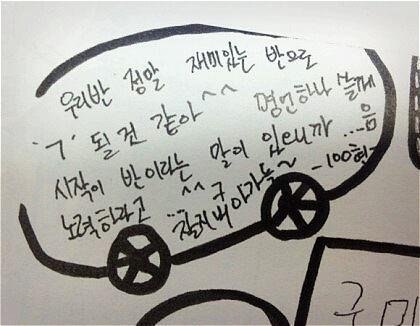 우리반 정말 재미있는 반으로
'7' 될것 같아^^ 명언하나 쓸께
시작이 반이라는 말이 있으니까 ...음
노력하라고 ^^ 구
-100회-
구미